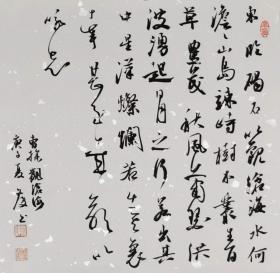 東臨碣石以觀滄海水何
澹澹山島竦峙樹木叢生百
草豐茂秋風蕭瑟洪
波湧起日月之行若出其
中星漢燦爛若出其裏
幸甚至哉歌以
詠志
曹操觀滄海
庚子夏書